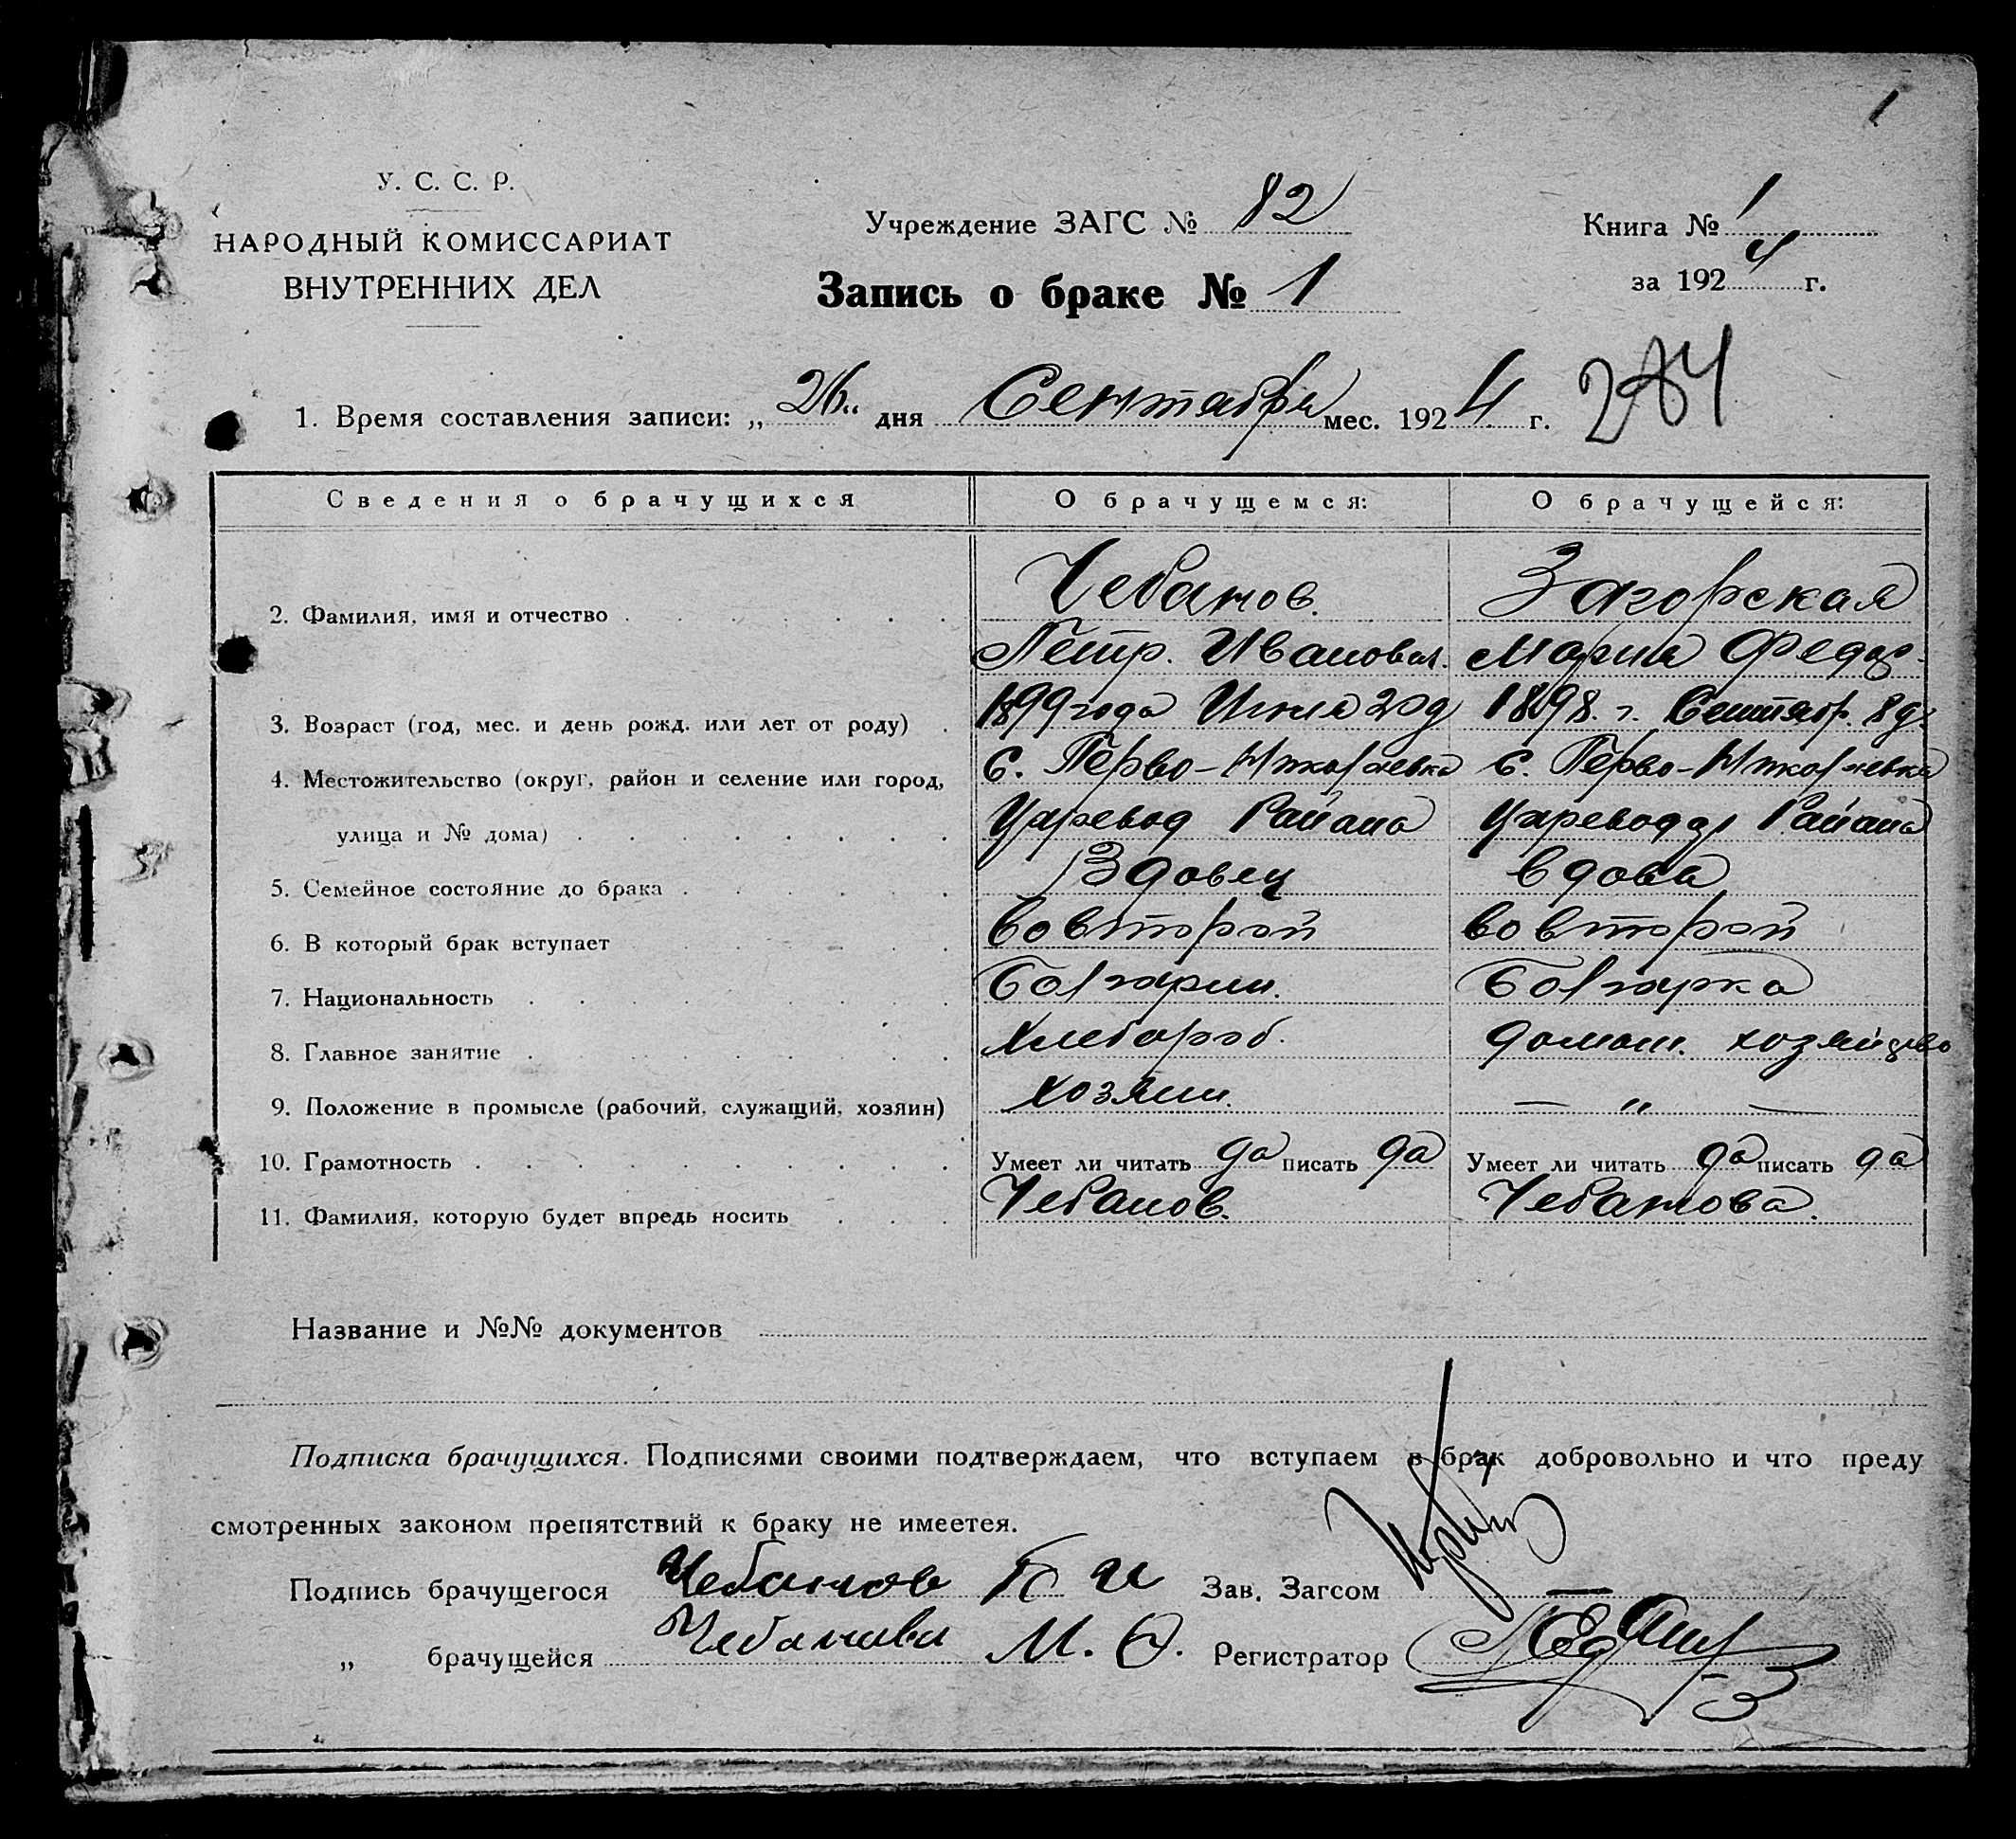 1
У. С. С. Р.
НАРОДНЫЙ КОМИССАРИАТ
ВНУТРЕННИХ ДЕЛ
Учреждение ЗАГС № 82
Запись о браке № 1
Книга № 1
за 1924 г.
1. Время составления записи: „26" дня Сентября мес. 1924 г.
Сведения о брачущихся О брачущемся: О брачущейся:
2. Фамилия, имя и отчество Чебанов. Загорская
Петр. Иванович. Мария Федор.
3. Возраст (год, мес. и день рожд. или лет от роду) 1899 года 20 д 1898. г. Сентябр. 8 д.
4. Местожительство (округ, район и селение или город, С. Перво-Николаевка С. Перво-Николаевка
улица и № дома) Царевод Района Царевод Района
5. Семейное состояние до брака Вдовец вдова
6. В который брак вступает Во второй во второй
7. Национальность Болгарин. Болгарка
8. Главное занятие Хлебороб. домаш. хозяйство
9. Положение в промысле (рабочий, служащий, хозяин) хозяин. — „ —
10. Грамотность Умеет ли читать да писать да Умеет ли читать да писать да
11. Фамилия, которую будет впредь носить Чебанов. Чебанова.
Название и №№ документов
Подписка брачущихся. Подписями своими подтверждаем, что вступаем в брак добровольно и что преду
смотренных законом препятствий к браку не имеетея.
Подпись брачущегося Чебанов П И Зав. Загсом
„ брачущейся Чебанова М. Ф. Регистратор